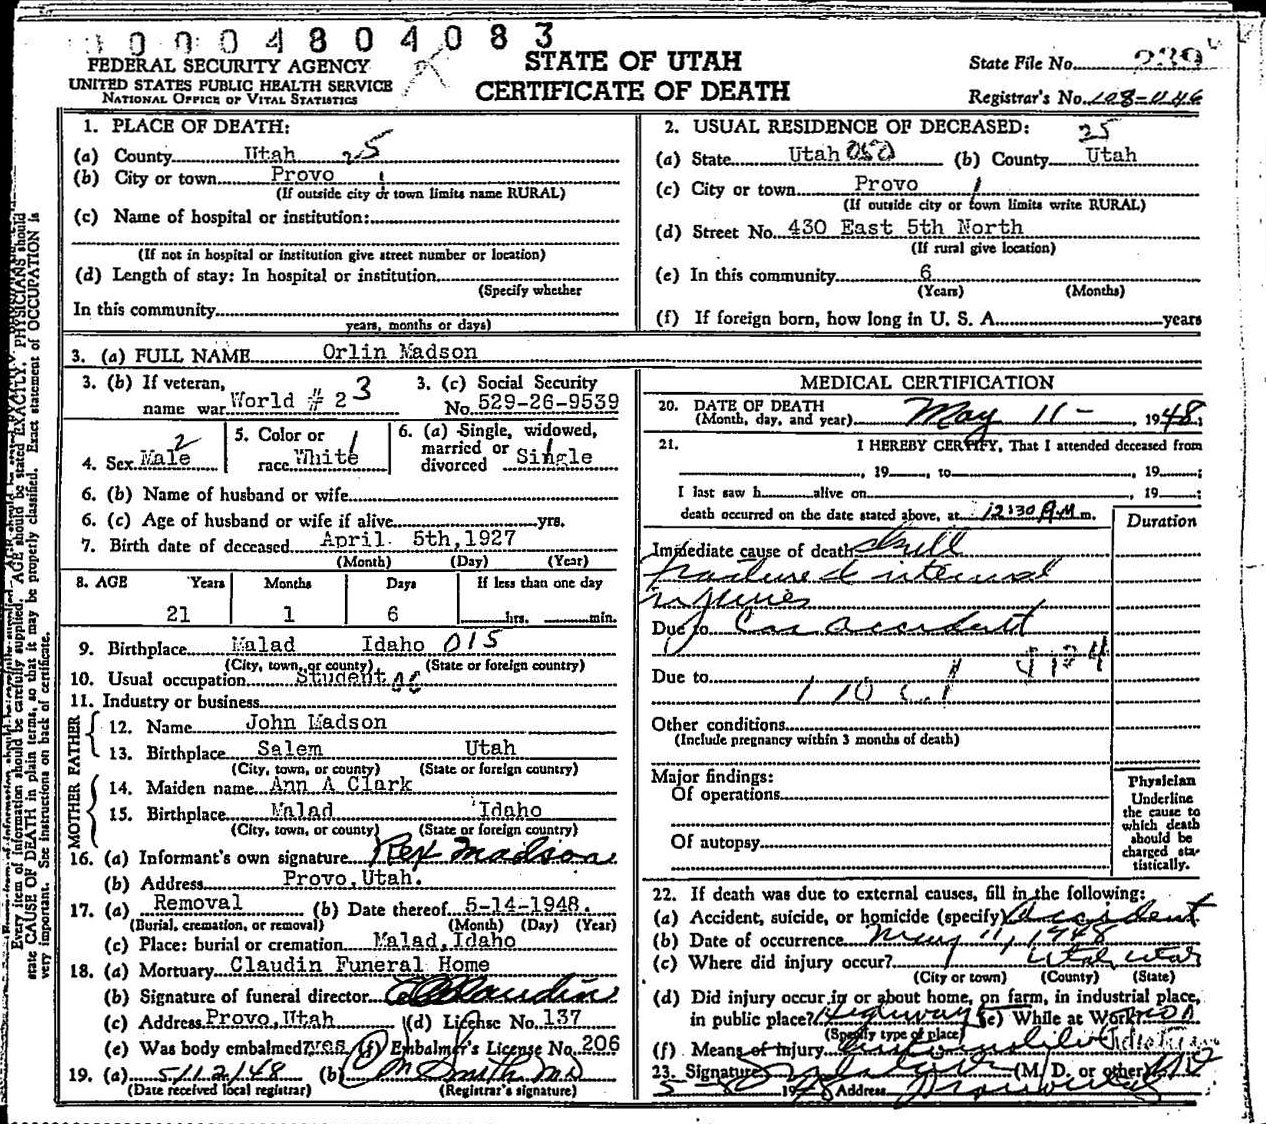 0 0 0 4 8 0 4 0 8 3
FEDERAL SECURITY AGENCY
UNITED STATES PUBLIC HEALTH SERVICE
NATIONAL OFFICE OF VITAL STATISTICS
STATE OF UTAH
CERTIFICATE OF DEATH
State File No.
Registrar's No.
1. PLACE OF DEATH:
(a) County Utah 25
(b) City or town Provo 1
(If outside city or town limits name RURAL)
(c) Name of hospital or institution:
(If not in hospital or institution give street number or location)
(d) Length of stay: In hospital or institution
(Specify whether
In this community
years, months or days)
2. USUAL RESIDENCE OF DECEASED: 25
(a) State Utah 050 (b) County Utah
(c) City or town Provo 1
(If outside city or town limits write RURAL)
(d) Street No. 430 East 5th North
(If rural give location)
(e) In this community 6
(Years) (Months)
(f) If foreign born, how long in U. S. A. years
3. (a) FULL NAME Orlin Madson
3. (b) If veteran,
name war World # 2 3
3. (c) Social Security
No. 529-26-9539
4. Sex Male 2
5. Color or
race White 1
6. (a) Single, widowed,
married or
divorced Single 1
6. (b) Name of husband or wife
6. (c) Age of husband or wife if alive yrs.
7. Birth date of deceased April 5th, 1927
(Month) (Day) (Year)
8. AGE Years Months Days If less than one day
21 1 6 hrs. min.
9. Birthplace Malad Idaho 015
(City, town, or county) (State or foreign country)
10. Usual occupation Student
11. Industry or business
FATHER
12. Name John Madson
13. Birthplace Salem Utah
(City, town, or county) (State or foreign country)
MOTHER
14. Maiden name Ann A Clark
15. Birthplace Malad Idaho
(City, town, or county) (State or foreign country)
16. (a) Informant's own signature Rex Madson
(b) Address Provo, Utah.
17. (a) Removal (b) Date thereof 5-14-1948.
(Burial, cremation, or removal) (Month) (Day) (Year)
(c) Place: burial or cremation Malad, Idaho
18. (a) Mortuary Claudin Funeral Home
(b) Signature of funeral director Claudin
(c) Address Provo, Utah (d) License No. 137
(e) Was body embalmed? yes (f) Embalmer's License No. 206
19. (a) 5/12/48 (b) Smith MD
(Date received local registrar) (Registrar's signature)
MEDICAL CERTIFICATION
20. DATE OF DEATH
(Month, day, and year) May 11 - , 1948;
21. I HEREBY CERTIFY, That I attended deceased from
, 19 , to , 19 ;
I last saw h alive on , 19 ;
death occurred on the date stated above, at 12:30 m.
Duration
Immediate cause of death Skull
fracture & internal
injuries
Due to Car accident
Due to
Other conditions
(Include pregnancy within 3 months of death)
Major findings:
Of operations
Of autopsy
Physician
Underline
the cause to
which death
should be
charged sta-
tistically.
22. If death was due to external causes, fill in the following:
(a) Accident, suicide, or homicide (specify) Accident
(b) Date of occurrence May 11, 1948
(c) Where did injury occur? Utah, Utah
(City or town) (County) (State)
(d) Did injury occur in or about home, on farm, in industrial place,
in public place? Highway (e) While at Work?
(Specify type of place)
(f) Means of injury
23. Signature (M. D. or other)
19 Address
Every item of information should be carefully supplied. AGE should be stated EXACTLY. PHYSICIANS should
state CAUSE OF DEATH in plain terms, so that it may be properly classified. Exact statement of OCCUPATION is
very important. See instructions on back of certificate.